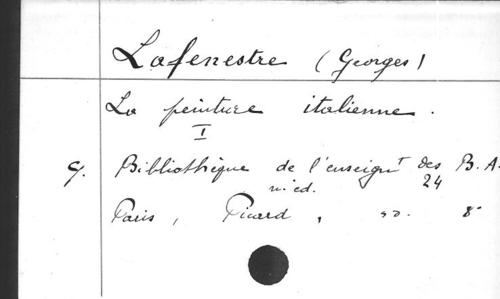 Lafenestre (Georges)
La peinture italienne.
I
G. Bibliothèque de l'enseignt des B. A.
n. ed. 24
Paris, Picard, s.d. 8°